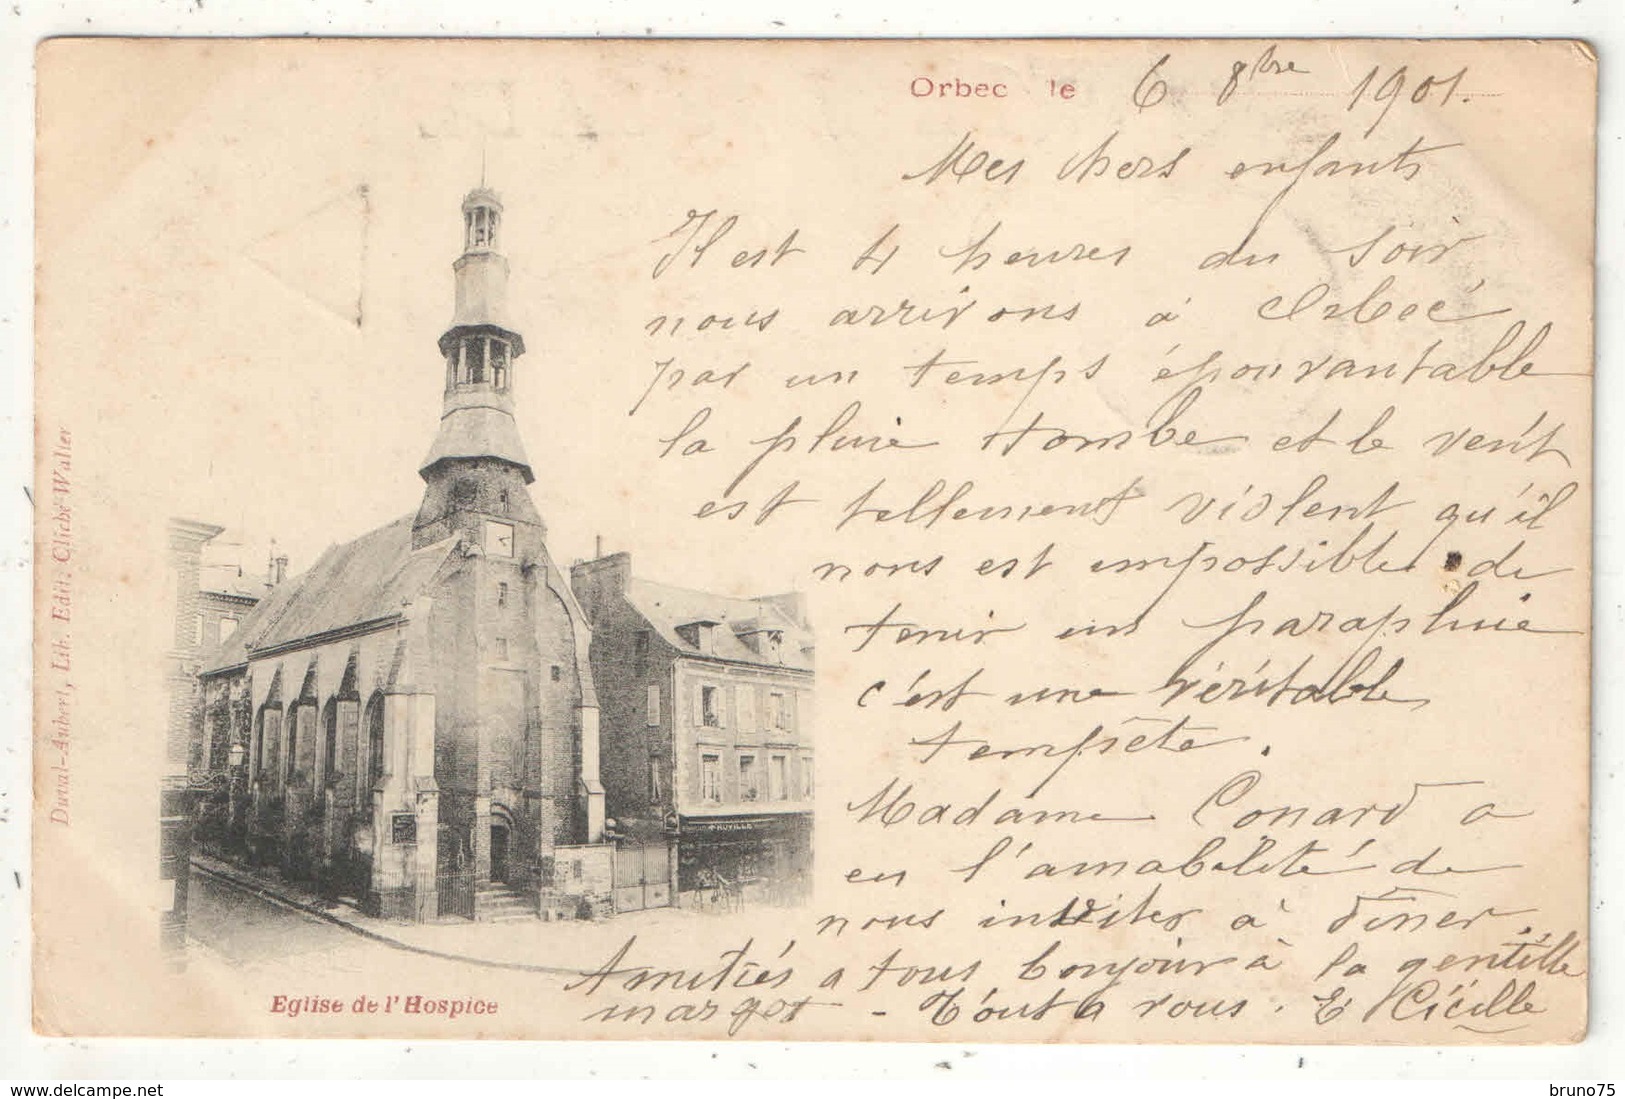 Orbec le 6 8bre 1901.
Mes chers enfants
Il est 4 heures du soir
nous arrivons à Orbec
par un temps épouvantable
la pluie tombe et le vent
est tellement violent qu'il
nous est impossible de
tenir un parapluie
c'est une véritable
tempête.
Madame Conard a
eu l'amabilité de
nous inviter à diner
Amitiés a tous bonjour à la gentille
margot - Tout a vous. Cécille
Eglise de l'Hospice
Duval-Aubert, Lith. Edit. Cliché Walter
HUVILLE
delcampe.net
bruno75